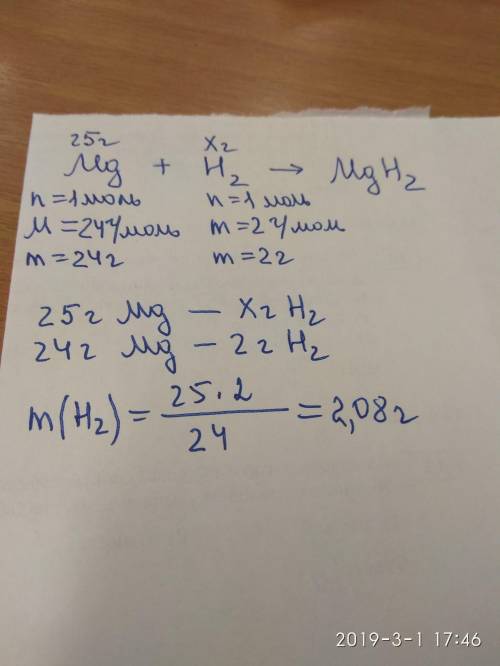 25г хг
Mg + H₂ → MgH₂
n = 1 моль n = 1 моль
M = 24г/моль m = 2 г/мом
m = 24г m = 2г
25г Mg — хг H₂
24г Mg — 2г H₂
m(H₂) = 25·2 / 24 = 2,08г
2019-3-1 17:46